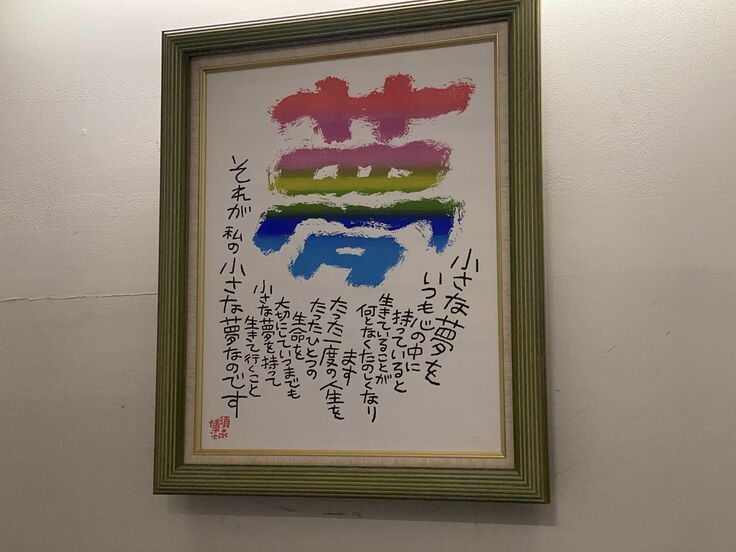 夢
小さな夢を
いつも心の中に
持っていると
生きていることが
何となくたのしくなり
ます
たった一度の人生を
たったひとつの
生命を
大切にしていつまでも
小さな夢を持って
生きて行くこと
それが私の小さな夢なのです
須永
博士